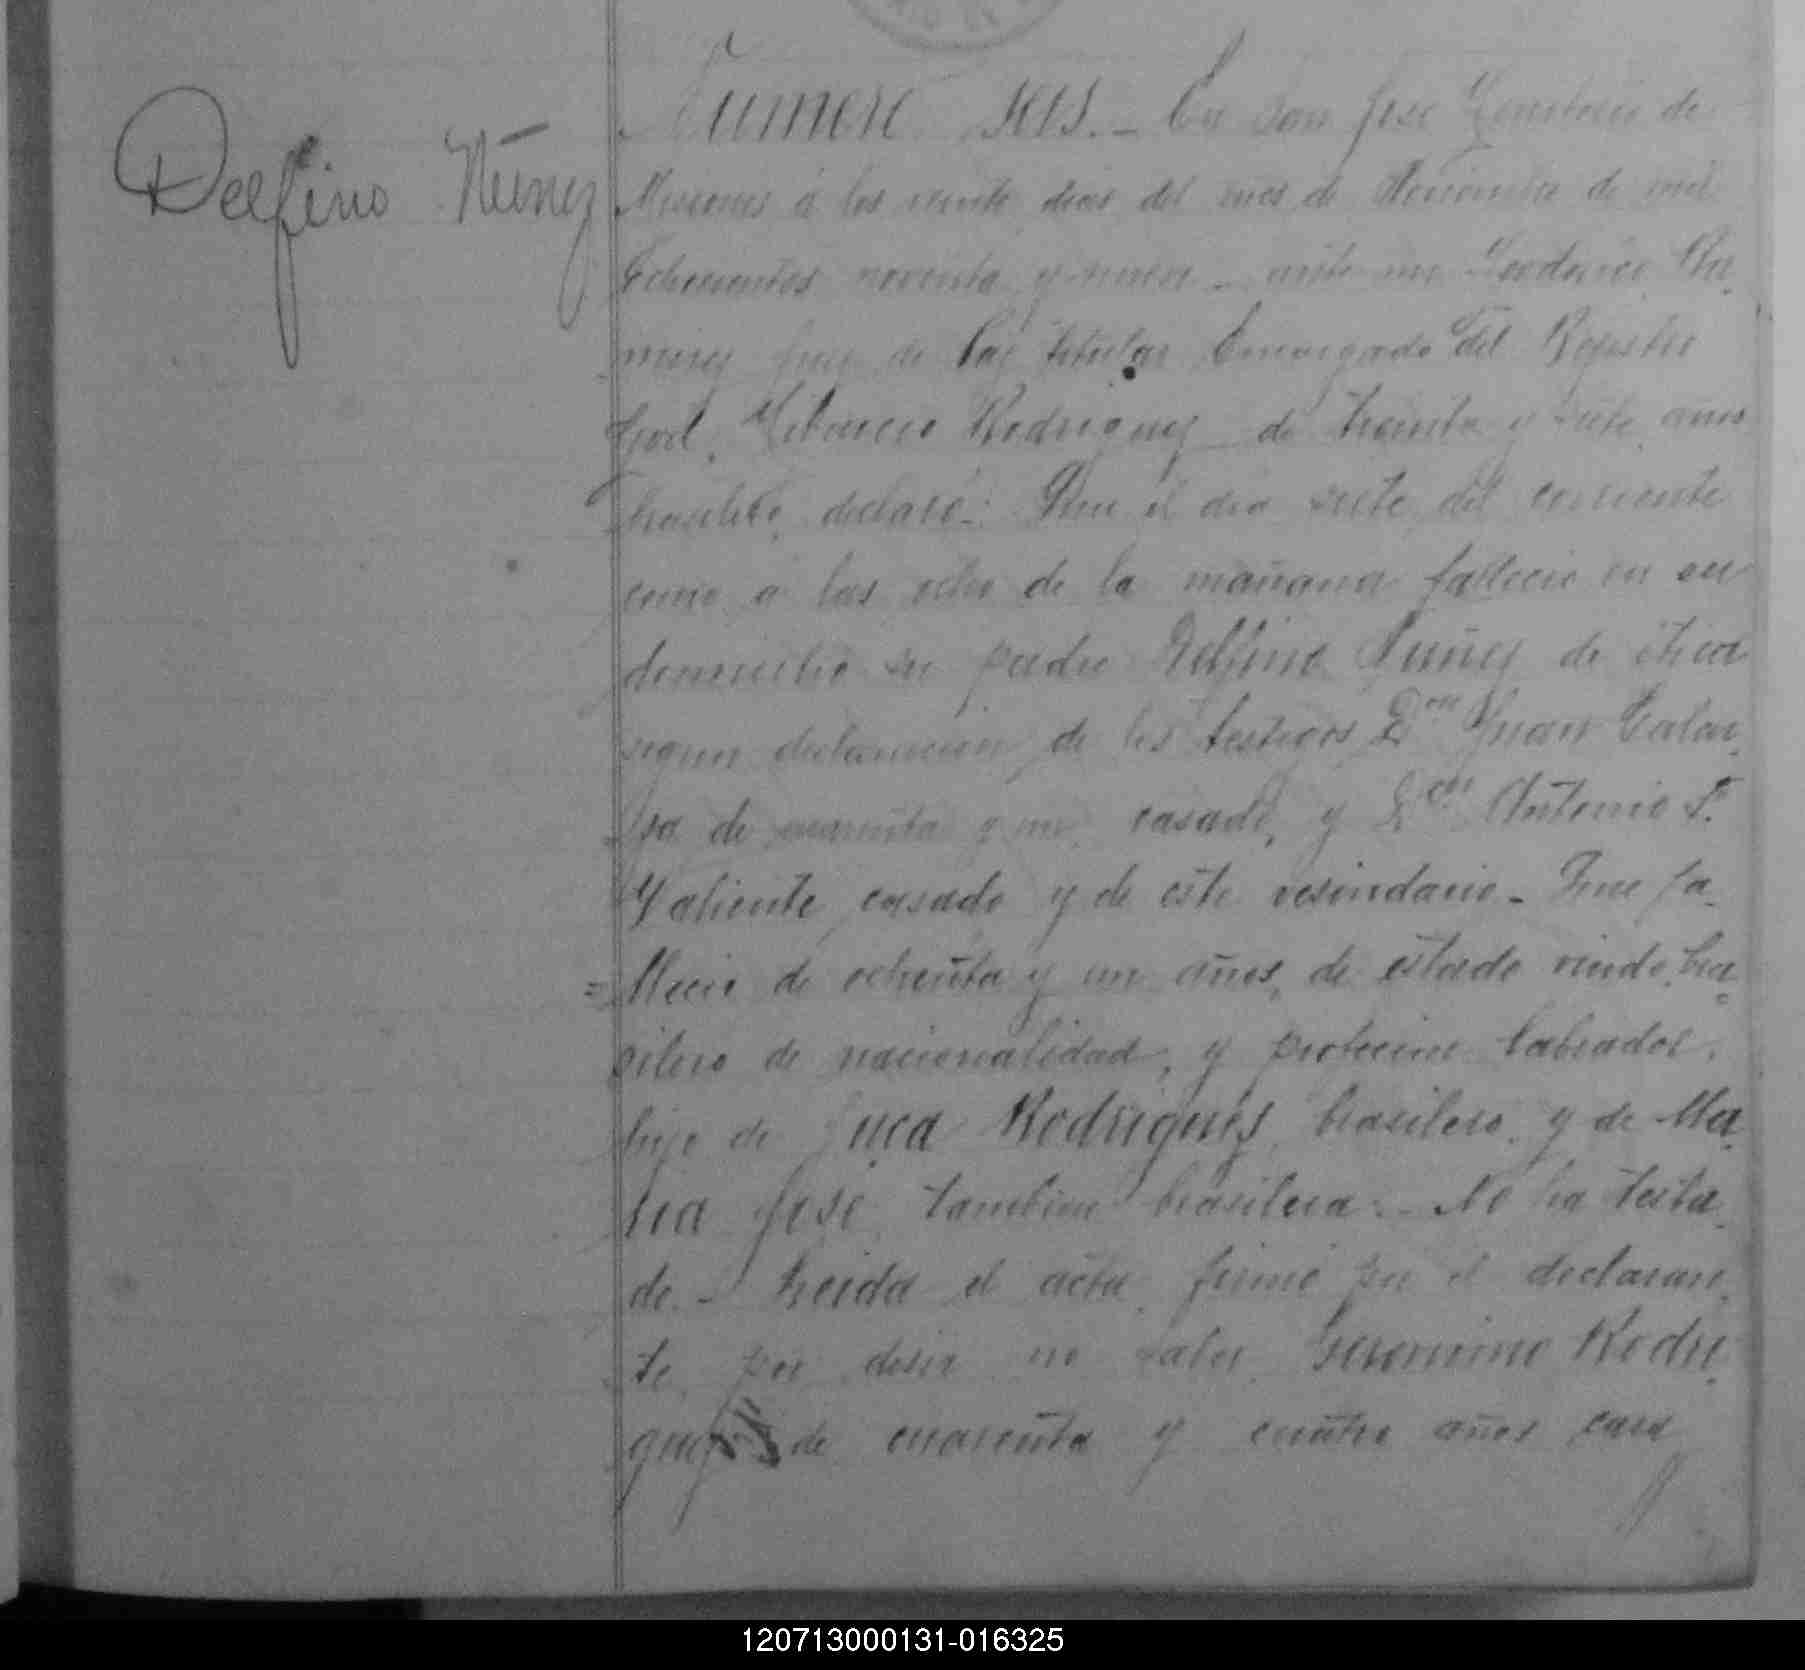 Delfino Núñez
Numero seis. - En San José Territorio de
Misiones á los veinte dias del mes de Noviembre de mil
Ochocientos noventa y nueve - ante mi
Juez de Paz titular Encargado del Rejistro
Civil, Rodriguez de treinta y siete años
brasilero, declaró: Que el dia siete del corriente
como a las ocho de la mañana fallecio en su
domicilio su padre Delfino Nuñez de
segun declaracion de los testigos Don Juan
de cuarenta y un casado, y Don Antonio S.
Valiente casado y de este vesindario - Que fa-
=llecio de ochenta y un años, de estado viudo, bra-
silero de nacionalidad, y profecion labrador.
hijo de Juca Rodrigues brasilero, y de Ma-
ria José tambien brasilera. - No ha testa-
do. - Leida el acta, firmó por el declaran-
te por desir no saber Geronimo Rodri-
guez de cuarenta y cuatro años casa
120713000131-016325